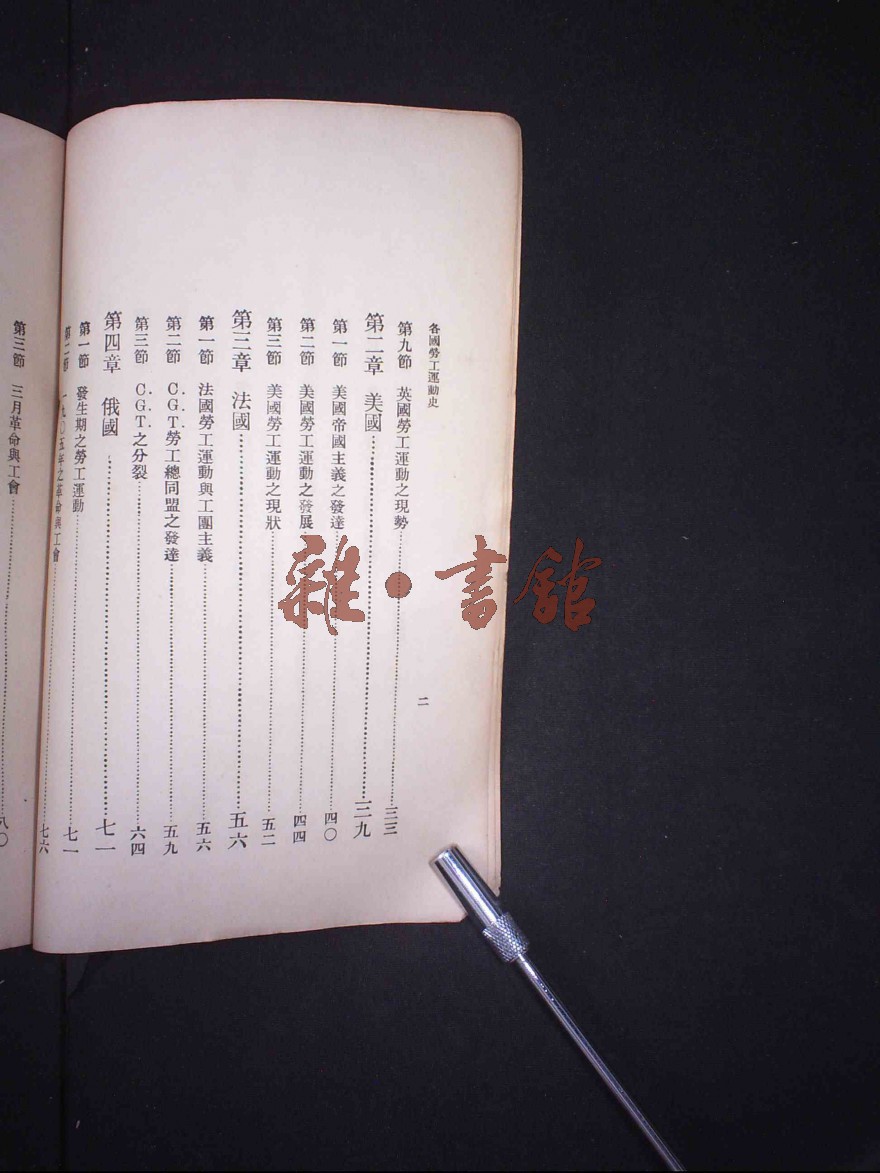 各國勞工運動史
二
第九節 英國勞工運動之現勢 三三
第二章 美國 三九
第一節 美國帝國主義之發達 四〇
第二節 美國勞工運動之發展 四四
第三節 美國勞工運動之現狀 五二
第三章 法國 五六
第一節 法國勞工運動與工團主義 五六
第二節 C.G.T.勞工總同盟之發達 五九
第三節 C.G.T.之分裂 六四
第四章 俄國 七一
第一節 發生期之勞工運動 七一
第二節 一九〇五年之革命與工會 七六
第三節 三月革命與工會 八〇
雜·書館